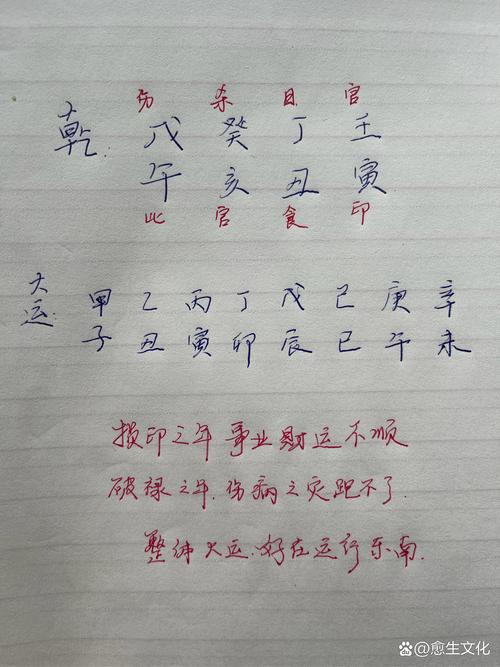 伤 杀 日 官
乾: 戊 癸 丁 壬
午 亥 丑 寅
比 官 食 印
大运: 甲 乙 丙 丁 戊 己 庚 辛
子 丑 寅 卯 辰 巳 午 未
损印之年事业财运不顺
破禄之年,伤病之灾跑不了.
整体大运,好在运行东南.
@愈生文化